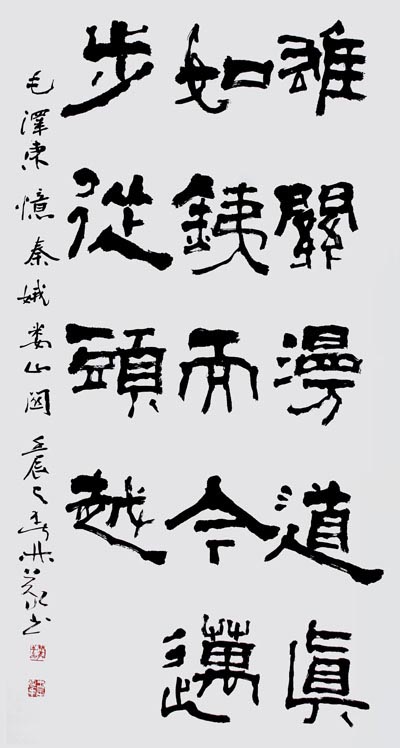 雄關漫道眞
如銕而今邁
步從頭越
毛澤東憶秦娥娄山関 壬辰之春